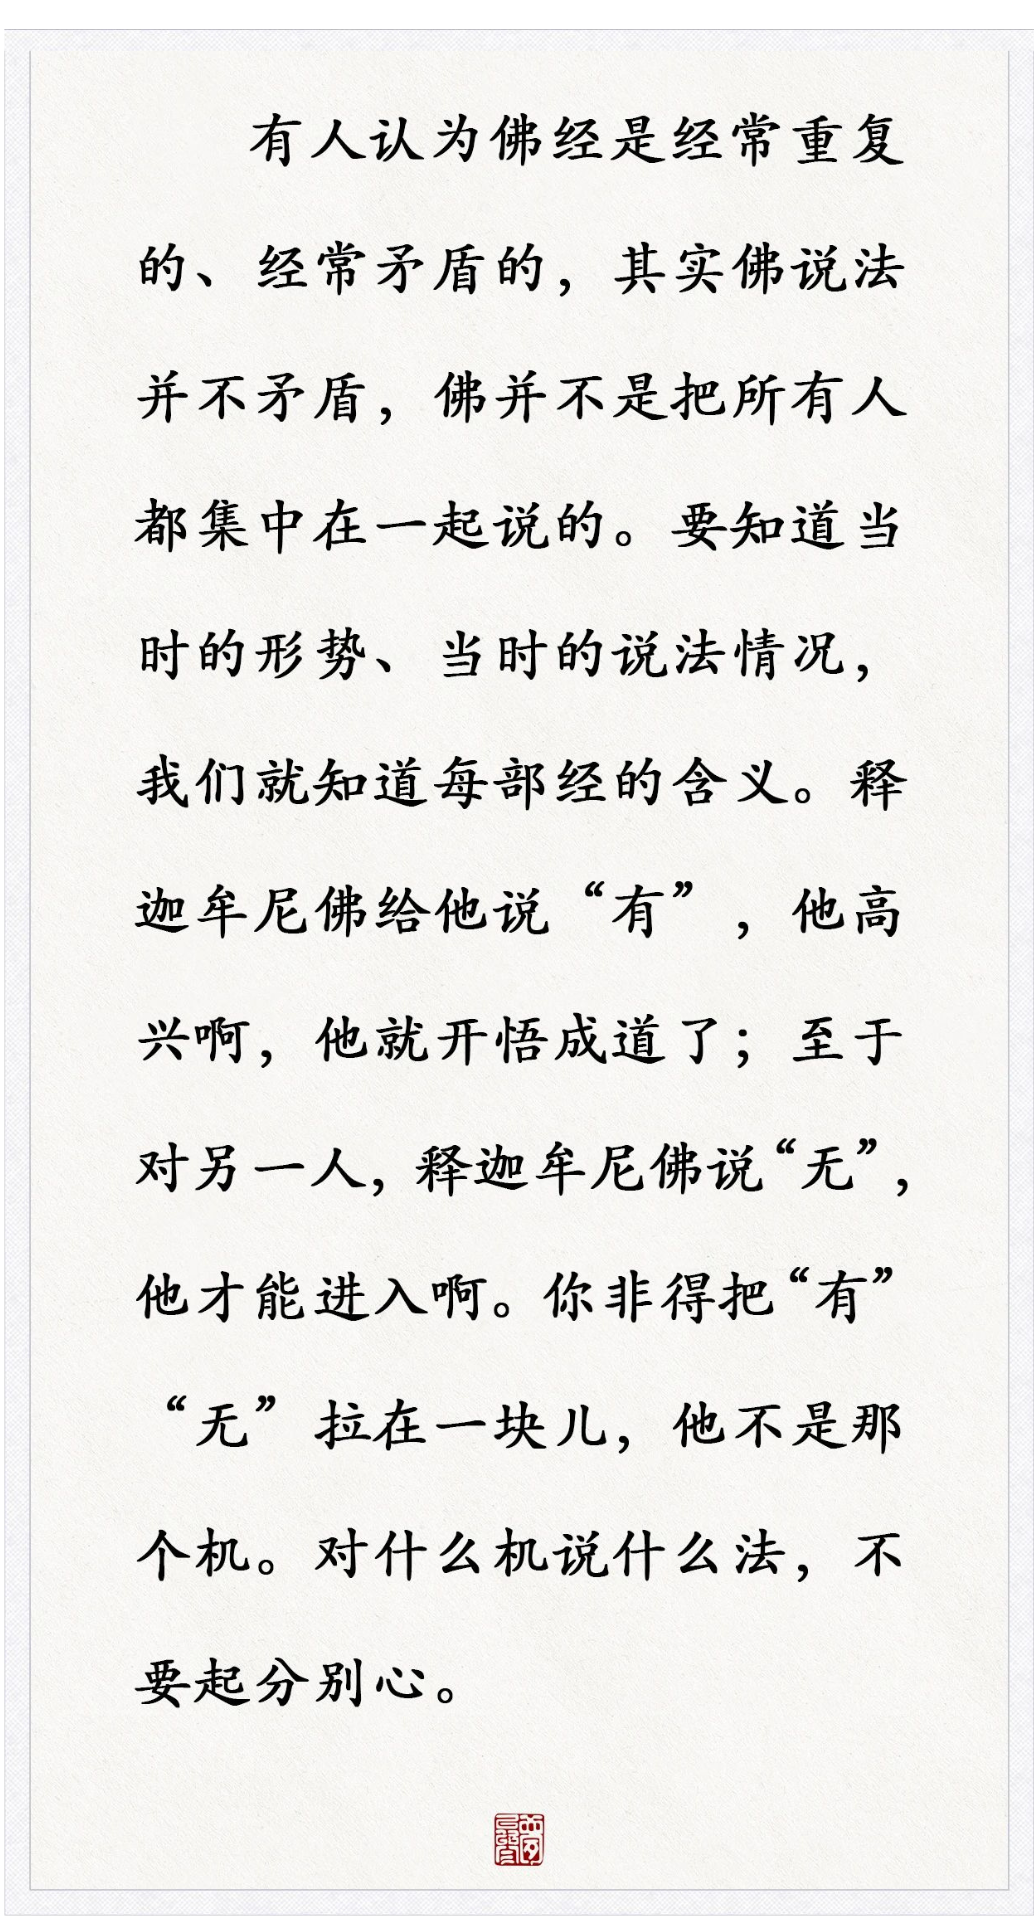 有人认为佛经是经常重复
的、经常矛盾的，其实佛说法
并不矛盾，佛并不是把所有人
都集中在一起说的。要知道当
时的形势、当时的说法情况，
我们就知道每部经的含义。释
迦牟尼佛给他说“有”，他高
兴啊，他就开悟成道了；至于
对另一人，释迦牟尼佛说“无”，
他才能进入啊。你非得把“有”
“无”拉在一块儿，他不是那
个机。对什么机说什么法，不
要起分别心。